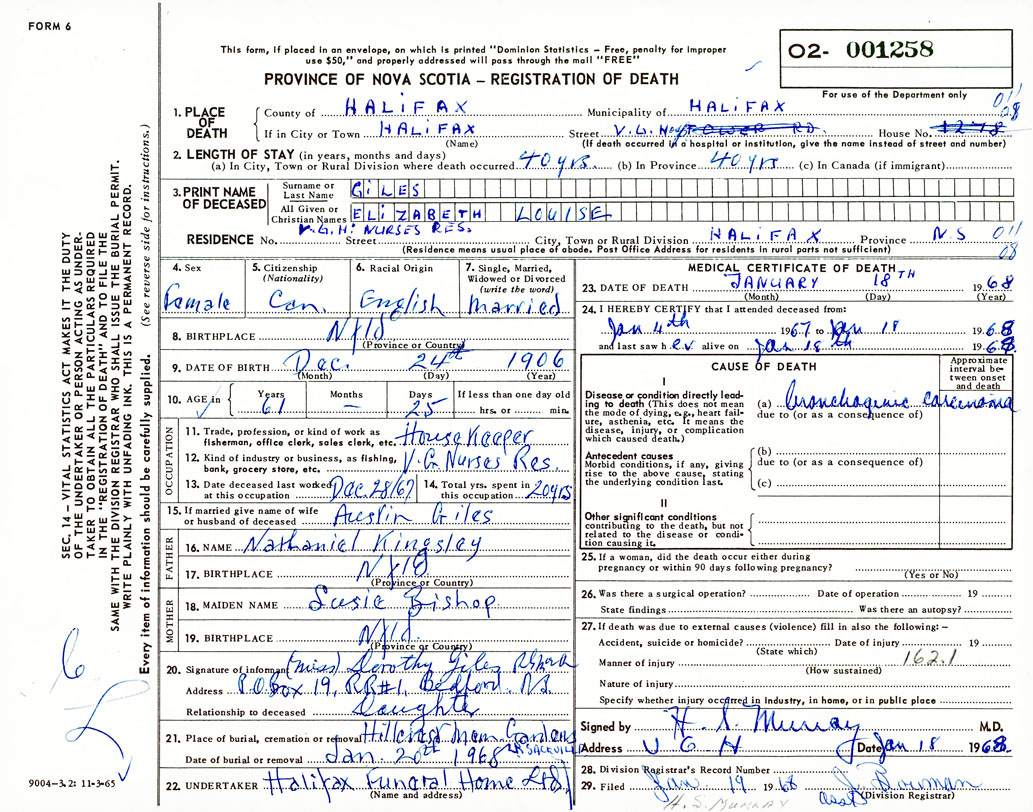 FORM 6
This form, if placed in an envelope, on which is printed "Dominion Statistics – Free, penalty for improper
use $50," and properly addressed will pass through the mail "FREE"
PROVINCE OF NOVA SCOTIA – REGISTRATION OF DEATH
02- 001258
For use of the Department only
011
08
1. PLACE OF DEATH
County of HALIFAX Municipality of HALIFAX
If in City or Town HALIFAX Street V.G. Hosp. TOWER RD. House No. 1278
(Name) (If death occurred in a hospital or institution, give the name instead of street and number)
2. LENGTH OF STAY (in years, months and days)
(a) In City, Town or Rural Division where death occurred 40 yrs. (b) In Province 40 yrs (c) In Canada (if immigrant)
3. PRINT NAME OF DECEASED
Surname or Last Name GILES
All Given or Christian Names ELIZABETH LOUISE
V.G.H. NURSES RES.
RESIDENCE No. Street City, Town or Rural Division HALIFAX Province N.S 011
08
(Residence means usual place of abode. Post Office Address for residents in rural parts not sufficient)
SEC. 14 – VITAL STATISTICS ACT MAKES IT THE DUTY
OF THE UNDERTAKER OR PERSON ACTING AS UNDER-
TAKER TO OBTAIN ALL THE PARTICULARS REQUIRED
IN THE "REGISTRATION OF DEATH" AND TO FILE THE
SAME WITH THE DIVISION REGISTRAR WHO SHALL ISSUE THE BURIAL PERMIT.
WRITE PLAINLY WITH UNFADING INK. THIS IS A PERMANENT RECORD.
Every item of information should be carefully supplied. (See reverse side for instructions.)
4. Sex
Female
5. Citizenship
(Nationality)
Can.
6. Racial Origin
English
7. Single, Married,
Widowed or Divorced
(write the word)
Married
8. BIRTHPLACE Nfld
(Province or Country)
9. DATE OF BIRTH Dec. 24th 1906
(Month) (Day) (Year)
10. AGE in Years Months Days If less than one day old
61 – 25 hrs. or min.
OCCUPATION
11. Trade, profession, or kind of work as
fisherman, office clerk, sales clerk, etc. HouseKeeper
12. Kind of industry or business, as fishing,
bank, grocery store, etc. V.G. Nurses Res.
13. Date deceased last worked
at this occupation Dec. 28/67
14. Total yrs. spent in
this occupation 20 yrs
15. If married give name of wife
or husband of deceased Austin Giles
FATHER
16. NAME Nathaniel Kingsley
17. BIRTHPLACE Nfld
(Province or Country)
MOTHER
18. MAIDEN NAME Susie Bishop
19. BIRTHPLACE Nfld.
(Province or Country)
20. Signature of informant (Miss) Dorothy Giles
Address P.O. Box 19, RR#1, Bedford. N.S.
Relationship to deceased Daughter
21. Place of burial, cremation or removal Hillcrest Mem. Gardens
L. SACKVILLE
Date of burial or removal Jan. 20th 1968
22. UNDERTAKER Halifax Funeral Home Ltd.
(Name and address)
9004-3.2: 11-3-65
MEDICAL CERTIFICATE OF DEATH
23. DATE OF DEATH JANUARY 18TH 1968
(Month) (Day) (Year)
24. I HEREBY CERTIFY that I attended deceased from:
Jan 4th 1967 to Jan 18 1968
and last saw her alive on Jan 18th 1968.
CAUSE OF DEATH
Approximate
interval be-
tween onset
and death
I
Disease or condition directly lead-
ing to death (This does not mean
the mode of dying, e.g., heart fail-
ure, asthenia, etc. It means the
disease, injury, or complication
which caused death.)
(a) bronchogenic carcinoma
due to (or as a consequence of)
Antecedent causes
Morbid conditions, if any, giving
rise to the above cause, stating
the underlying condition last.
(b)
due to (or as a consequence of)
(c)
II
Other significant conditions
contributing to the death, but not
related to the disease or condi-
tion causing it.
25. If a woman, did the death occur either during
pregnancy or within 90 days following pregnancy?
(Yes or No)
26. Was there a surgical operation? Date of operation 19
State findings Was there an autopsy?
27. If death was due to external causes (violence) fill in also the following: –
Accident, suicide or homicide? Date of injury 19
(State which)
Manner of injury 162.1
(How sustained)
Nature of injury
Specify whether injury occurred in Industry, in home, or in public place
Signed by H. S. Murray M.D.
Address V G H Date Jan 18 1968.
28. Division Registrar's Record Number
29. Filed Jan 19 1968
(Division Registrar)
H. S. MURRAY